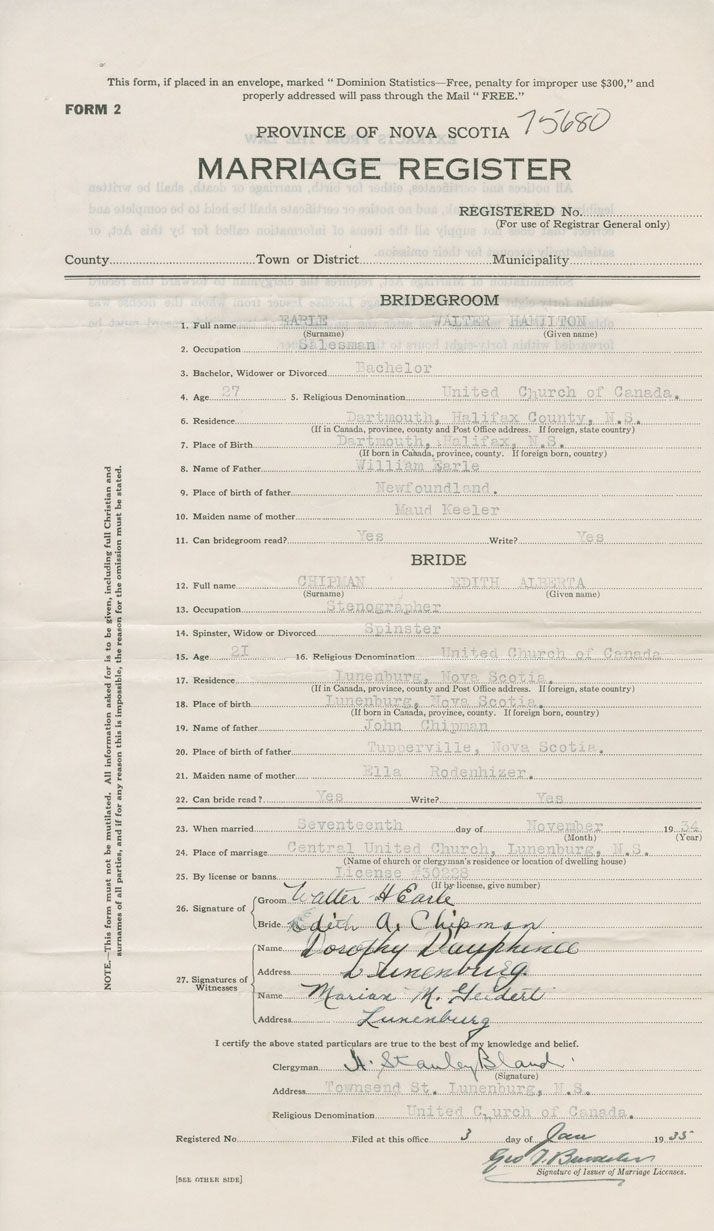 This form, if placed in an envelope, marked “ Dominion Statistics—Free, penalty for improper use $300,” and
properly addressed will pass through the Mail “ FREE.”
FORM 2
PROVINCE OF NOVA SCOTIA 75680
MARRIAGE REGISTER
REGISTERED No.
(For use of Registrar General only)
County Town or District Municipality
BRIDEGROOM
1. Full name EARLE WALTER HAMILTON
(Surname) (Given name)
2. Occupation Salesman
3. Bachelor, Widower or Divorced Bachelor
4. Age 27 5. Religious Denomination United Church of Canada.
6. Residence Dartmouth, Halifax County, N.S.
(If in Canada, province, county and Post Office address. If foreign, state country)
7. Place of Birth Dartmouth, Halifax, N.S.
(If born in Canada, province, county. If foreign born, country)
8. Name of Father William Earle
9. Place of birth of father Newfoundland.
10. Maiden name of mother Maud Keeler
11. Can bridegroom read? Yes Write? Yes
BRIDE
12. Full name CHIPMAN EDITH ALBERTA
(Surname) (Given name)
13. Occupation Stenographer
14. Spinster, Widow or Divorced Spinster
15. Age 21 16. Religious Denomination United Church of Canada
17. Residence Lunenburg, Nova Scotia.
(If in Canada, province, county and Post Office address. If foreign, state country)
18. Place of birth Lunenburg, Nova Scotia.
(If born in Canada, province, county. If foreign born, country)
19. Name of father John Chipman
20. Place of birth of father Tupperville, Nova Scotia.
21. Maiden name of mother Ella Rodenhizer.
22. Can bride read? Yes Write? Yes
23. When married Seventeenth day of November 1934
(Month) (Year)
24. Place of marriage Central United Church, Lunenburg, N.S.
(Name of church or clergyman's residence or location of dwelling house)
25. By license or banns License #30228
(If by license, give number)
26. Signature of Groom Walter H Earle
Bride Edith A. Chipman
27. Signatures of Witnesses Name Dorothy Dauphinee
Address Lunenburg.
Name Marian M. Geldert
Address Lunenburg
I certify the above stated particulars are true to the best of my knowledge and belief.
Clergyman H. Stanley Bland
(Signature)
Address Townsend St. Lunenburg, N.S.
Religious Denomination United Church of Canada.
Registered No. Filed at this office 3 day of Jan 1935
Geo
Signature of Issuer of Marriage Licenses.
[SEE OTHER SIDE]
NOTE.—This form must not be mutilated. All information asked for is to be given, including full Christian and
surnames of all parties, and if for any reason this is impossible, the reason for the omission must be stated.